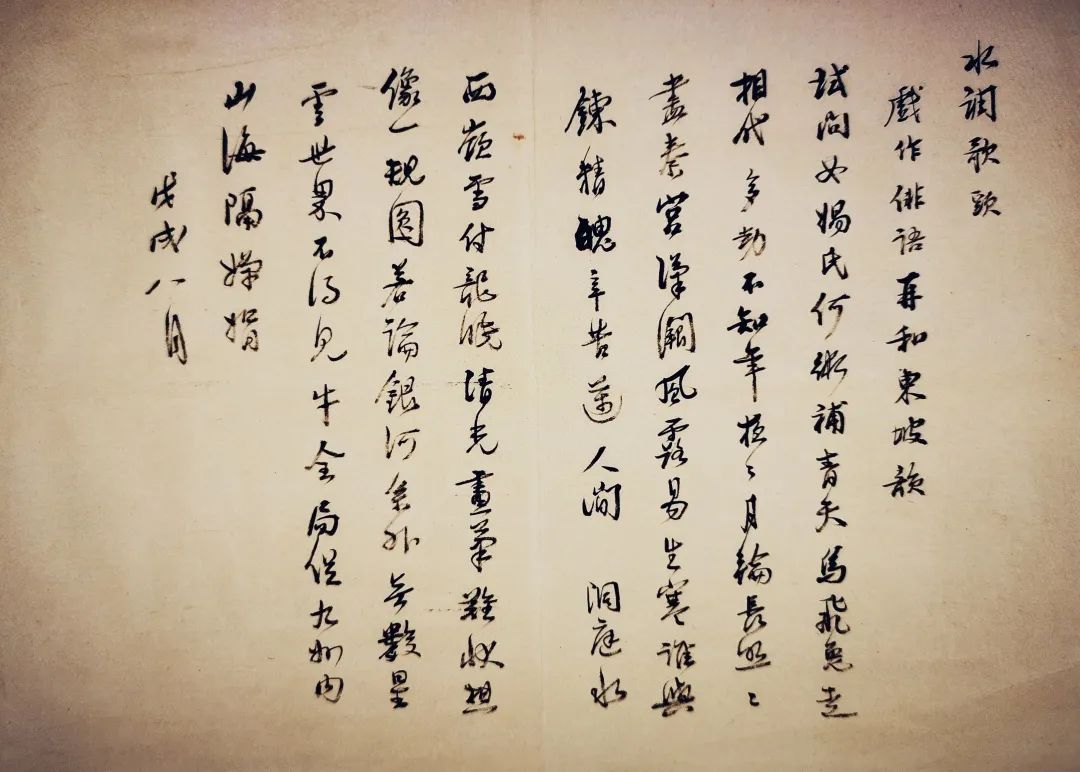 水調歌頭
戲作俳語再和東坡韻
試問女媧氏何術補青天烏飛兔走
相代多劫不知年月輪長照〻
盡秦宮漢闕風露易生寒誰與
鍊精魄辛苦人間 洞庭水
西嶺雪付龍眠清光畫筆難狀想
像一規圓若論銀河系外無數星
雲世界不得見牛全局促九州內
山海隔嬋娟
戊戌八月